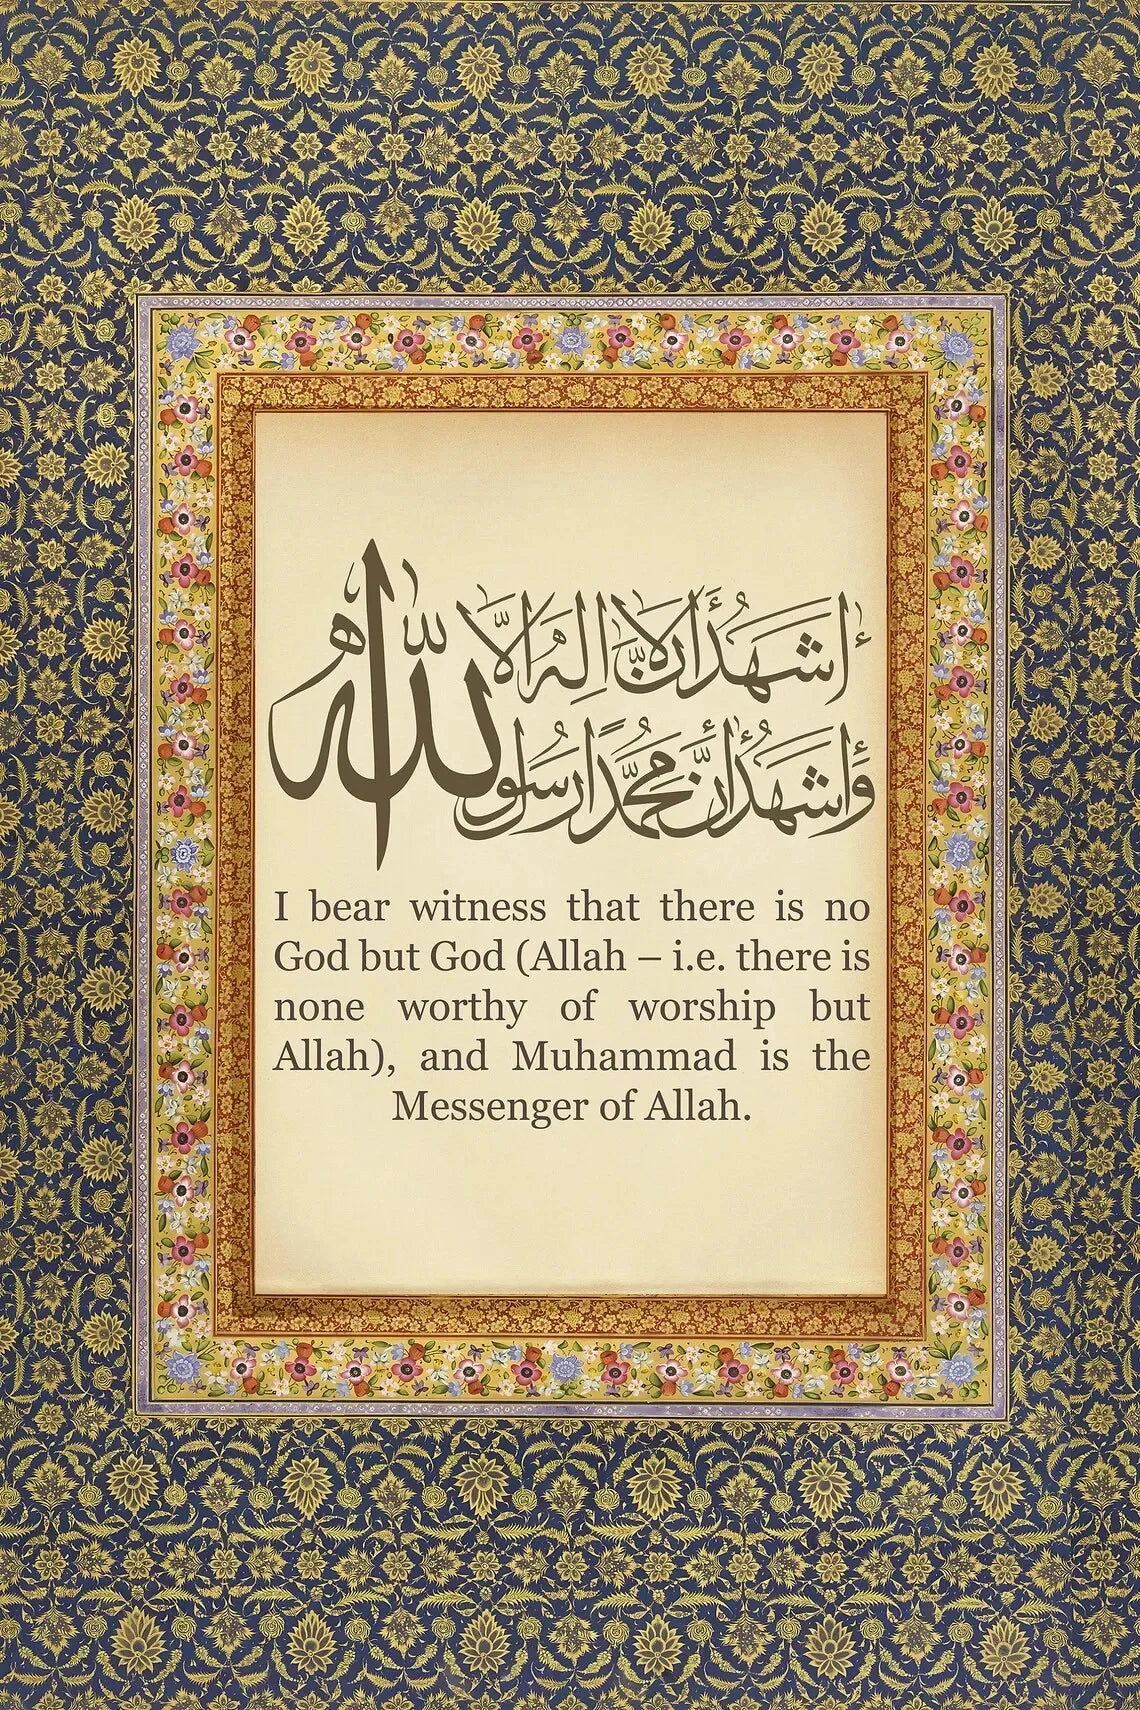 أشهد أن لا إله إلا الله
وأشهد أن محمدا رسول الله
I bear witness that there is no
God but God (Allah – i.e. there is
none worthy of worship but
Allah), and Muhammad is the
Messenger of Allah.